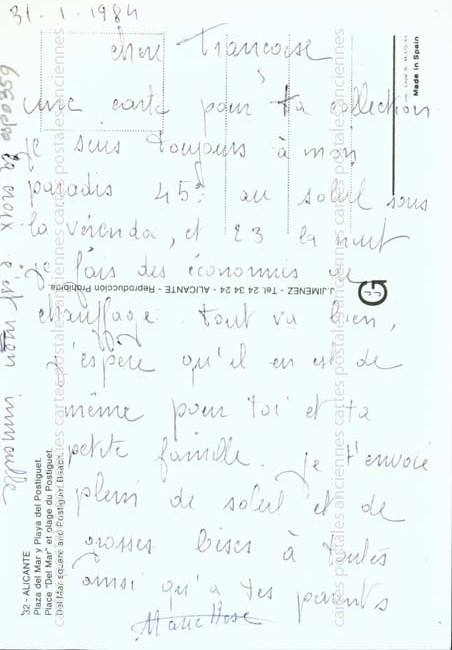 31.1.1984
chère Francoise
une carte pour ta collection
je suis toujours à mon
paradis 45° au soleil sous
la véranda, et 23 la nuit
je fais des économies de
chauffage. tout va bien,
j'espère qu'il en est de
même pour toi et ta
petite famille. je t'envoie
plein de soleil et de
grosses bises à toutes
ainsi qu'a tes parents
Marie Rose
la croix c'est mon immeuble
cartes postales anciennes cartes postales anciennes cartes postales anciennes
cartes postales anciennes cartes postales anciennes cartes postales anciennes
Made in Spain
J. JIMENEZ - Tel. 24 34 24 - ALICANTE - Reproducción Prohibida
32 - ALICANTE
Plaza del Mar y Playa del Postiguet.
Place "Del Mar" et plage du Postiguet.
Del Mar square and Postiguet Beach.